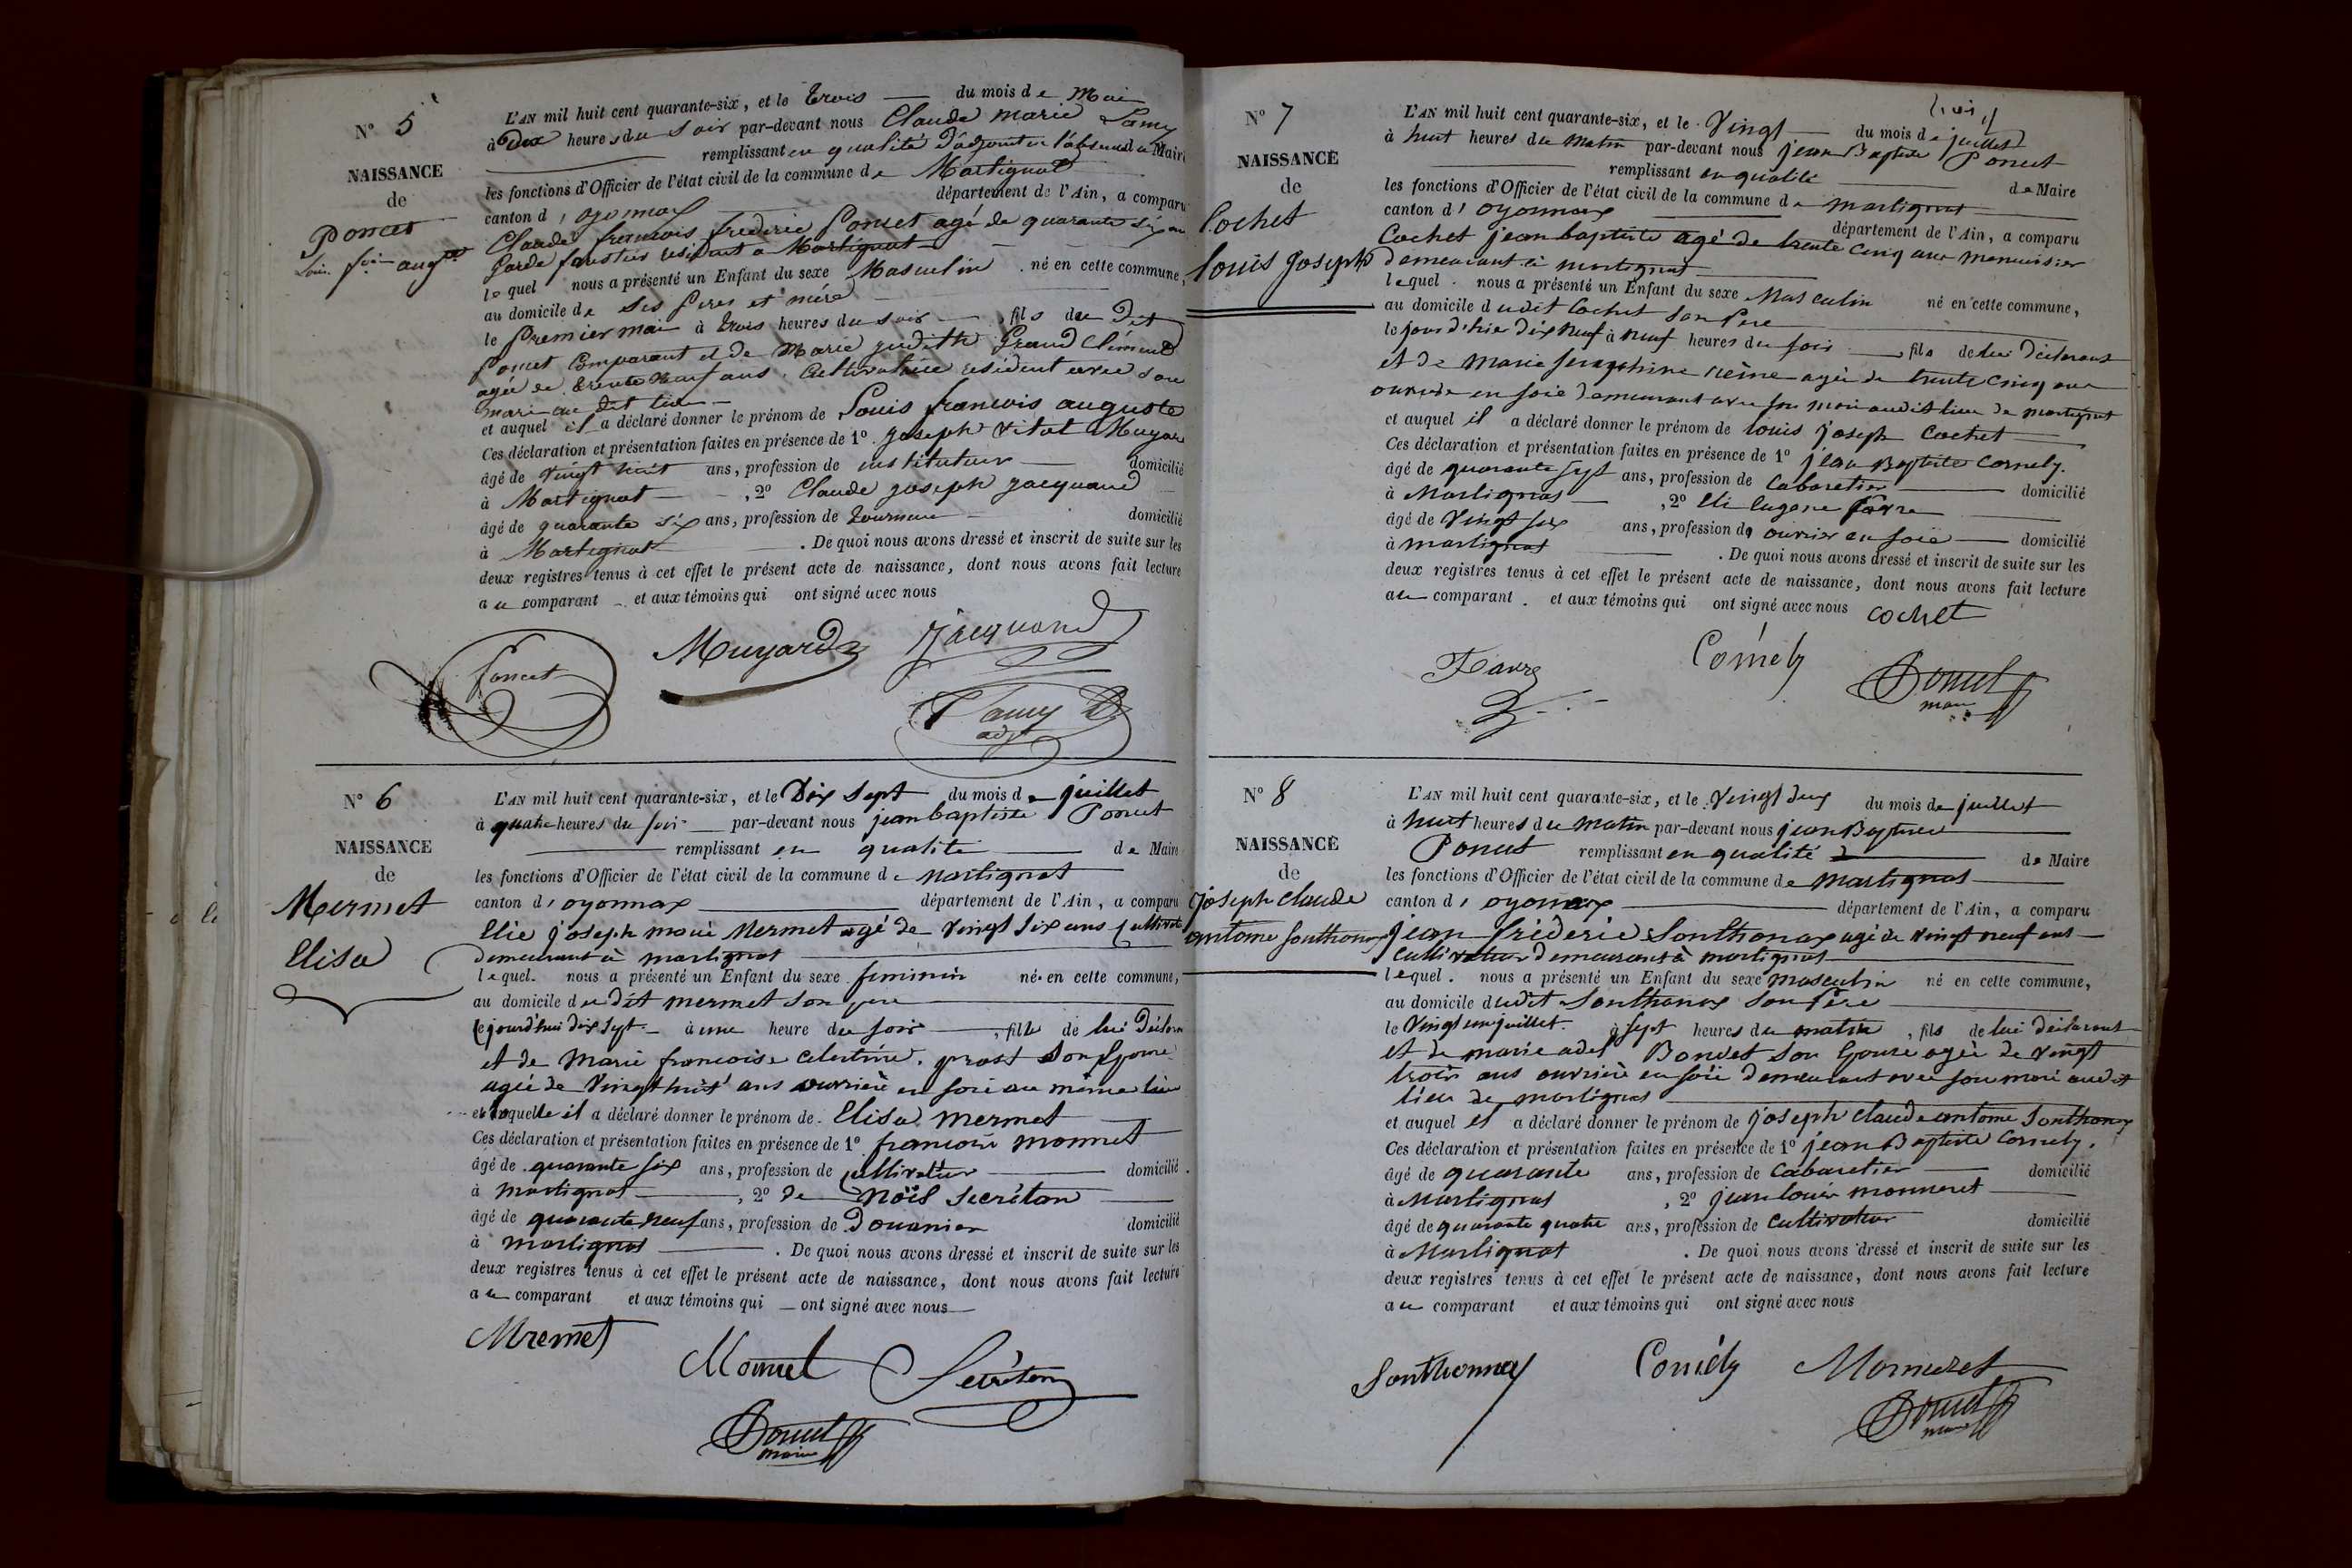 N° 5
NAISSANCE
de
Poncet
Louis f.ois aug.te
L'AN mil huit cent quarante-six, et le trois du mois de Mai
à Dix heures du Soir par-devant nous Claude Marie Lamy
remplissant en qualité d'adjoint en l'absence du Maire
les fonctions d'Officier de l'état civil de la commune de Martignat
canton d'oyonnax département de l'Ain, a comparu
Claude francois frederic Poncet agé de quarante six ans
Garde forestier résidant a Martignat
lequel nous a présenté un Enfant du sexe Masculin né en cette commune,
au domicile de ses peres et mére
le Premier mai à trois heures du soir, fils du Dit
Poncet Comparant et de Marie judith Grand Clément
agée de trente neuf ans Cultivatrice résident avec son
mari au dit lieu
et auquel il a déclaré donner le prénom de Louis francois auguste
Ces déclaration et présentation faites en présence de 1° joseph vital Muyard
âgé de vingt huit ans, profession de instituteur domicilié
à Martignat, 2° Claude joseph jacquand
âgé de quarante six ans, profession de tourneur domicilié
à Martignat. De quoi nous avons dressé et inscrit de suite sur les
deux registres tenus à cet effet le présent acte de naissance, dont nous avons fait lecture
au comparant et aux témoins qui ont signé avec nous
Muyard Jacquand
Poncet
Lamy
adjt
N° 6
NAISSANCE
de
Mermet
Elisa
L'AN mil huit cent quarante-six, et le Dix Sept du mois de juillet
à quatre heures du soir par-devant nous jean baptiste Poncet
remplissant en qualité de Maire
les fonctions d'Officier de l'état civil de la commune de Martignat
canton d'oyonnax département de l'Ain, a comparu
Elie joseph marie Mermet agé de vingt six ans Cultivateur
demeurant à martignat
lequel nous a présenté un Enfant du sexe feminin né en cette commune,
au domicile du dit mermet son pere
le jourd'hui dix sept à une heure du soir, fille de lui Déclarant
et de Marie francoise celestine prost son Epouse
agée de Vingt huit ans ouvrière en soie au même lieu
et laquelle il a déclaré donner le prénom de Elisa Mermet
Ces déclaration et présentation faites en présence de 1° francois monnet
âgé de quarante six ans, profession de cultivateur domicilié
à martignat, 2° de Noël Secrétan
âgé de quarante neuf ans, profession de Douanier domicilié
à martignat. De quoi nous avons dressé et inscrit de suite sur les
deux registres tenus à cet effet le présent acte de naissance, dont nous avons fait lecture
au comparant et aux témoins qui ont signé avec nous
Mremet
Monnet Secrétan
Poncet
maire
N° 7
NAISSANCE
de
Cochet
louis joseph
L'AN mil huit cent quarante-six, et le Vingt du mois de juillet
à huit heures du Matin par-devant nous jean Baptiste Poncet
remplissant en qualité de Maire
les fonctions d'Officier de l'état civil de la commune de martignat
canton d'oyonnax département de l'Ain, a comparu
Cochet jean baptiste agé de trente cinq ans menuisier
demeurant à martignat
lequel nous a présenté un Enfant du sexe Masculin né en cette commune,
au domicile dudit Cochet son Pere
le jour d'hier dix neuf à neuf heures du soir fils de lui Déclarant
et de marie agée de trente cinq ans
ouvriere en soie demeurant avec son mari audit lieu de martignat
et auquel il a déclaré donner le prénom de louis joseph Cochet
Ces déclaration et présentation faites en présence de 1° jean Baptiste Cornely
âgé de quarante sept ans, profession de Cabaretier domicilié
à Martignat, 2° Eli Eugene favre
âgé de Vingt six ans, profession de ouvrier en soie domicilié
à martignat. De quoi nous avons dressé et inscrit de suite sur les
deux registres tenus à cet effet le présent acte de naissance, dont nous avons fait lecture
au comparant et aux témoins qui ont signé avec nous cochet
Favre Cornély Poncet
maire
N° 8
NAISSANCE
de
joseph claude
antome Sonthonax
L'AN mil huit cent quarante-six, et le Vingt deux du mois de juillet
à huit heures du Matin par-devant nous jean Baptiste
Poncet remplissant en qualité de Maire
les fonctions d'Officier de l'état civil de la commune de martignat
canton d'oyonnax département de l'Ain, a comparu
jean fréderic Sonthonax agé de vingt neuf ans
Cultivateur demeurant à martignat
lequel nous a présenté un Enfant du sexe masculin né en cette commune,
au domicile dudit Sonthonax son Père
le Vingt un juillet à sept heures du matin, fils de lui déclarant
et de marie Bondet son Epouse agée de vingt
trois ans ouvrière en soie demeurant avec son mari audit
lieu de martignat
et auquel il a déclaré donner le prénom de joseph claude antome Sonthonax
Ces déclaration et présentation faites en présence de 1° jean Baptiste Cornely
âgé de quarante ans, profession de Cabaretier domicilié
à Martignat, 2° jean louis monneret
âgé de quarante quatre ans, profession de Cultivateur domicilié
à Martignat. De quoi nous avons dressé et inscrit de suite sur les
deux registres tenus à cet effet le présent acte de naissance, dont nous avons fait lecture
au comparant et aux témoins qui ont signé avec nous
Sonthonnax Cornély Monneret
Poncet
maire